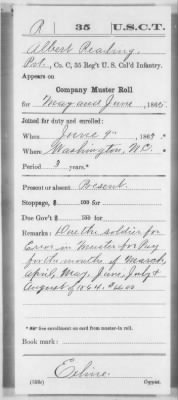 R | 35 | U.S.C.T.
Albert Reading
Pvt., Co. C, 35 Reg't U. S. Col'd Infantry.
Appears on
Company Muster Roll
for May and June, 1865.
Joined for duty and enrolled:
When June 9", 186
Where Washington, N.C.
Period 3 years.*
Present or absent Present
Stoppage, $ 100 for
Due Gov't $ 100 for
Remarks: Due the soldier for
Error in Muster for Pay
for the months of March,
April, May, June, July &
August of 1864.
* See enrollment on card from muster-in roll.
Book mark:
Copyist.